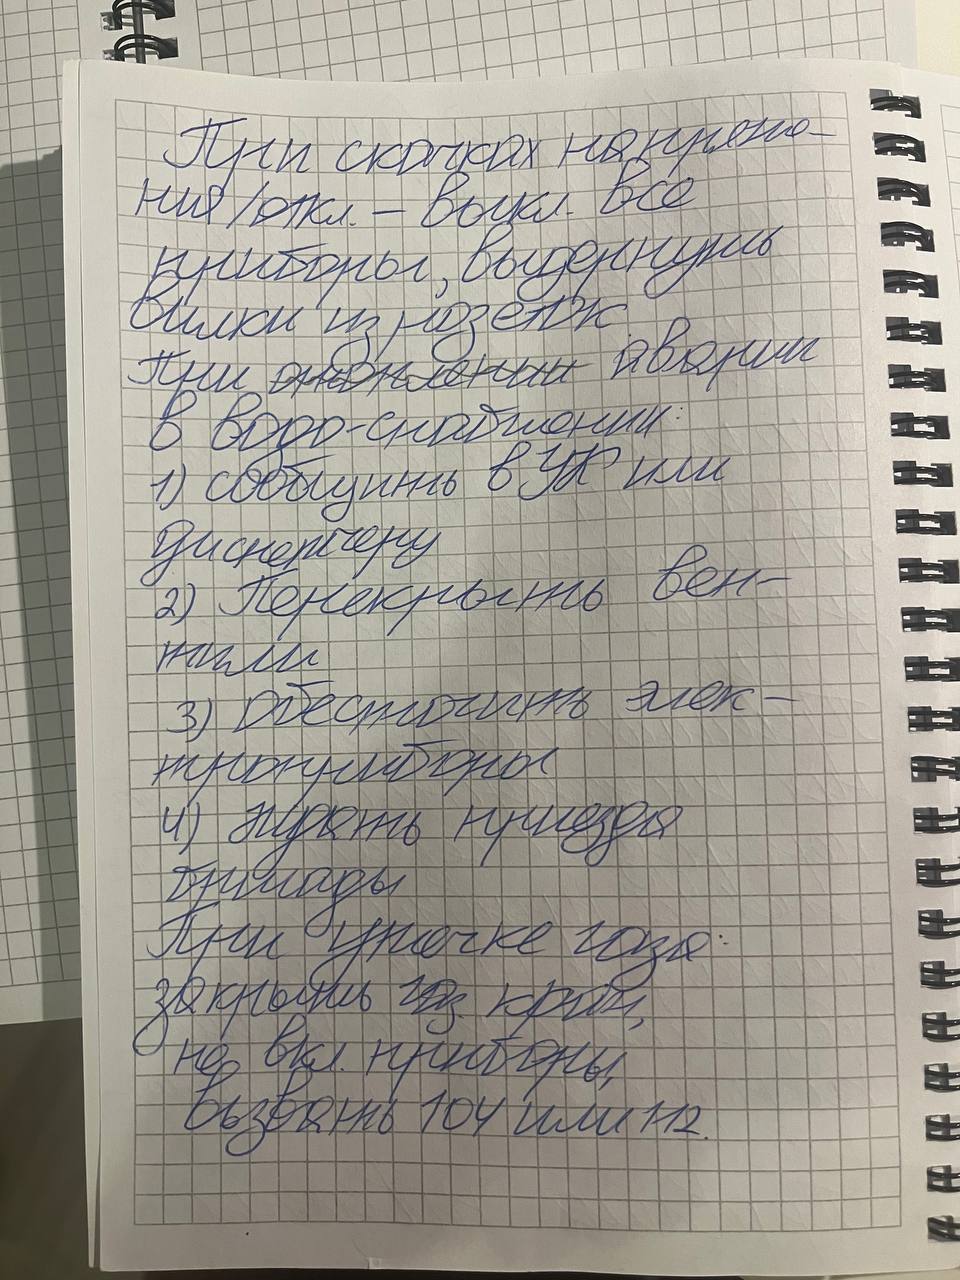 При скачках напряже-
ния/откл. – выкл. все
приборы, выдернуть
вилки из розеток.
При аварии
в водо-снабжении:
1) сообщить в УК или
диспетчеру
2) Перекрыть вен-
тили
3) Обесточить элек-
троприборы
4) Ждать приезда
бригады
При утечке газа:
закрыть газ. кран,
не вкл. приборы,
вызвать 104 или 112.